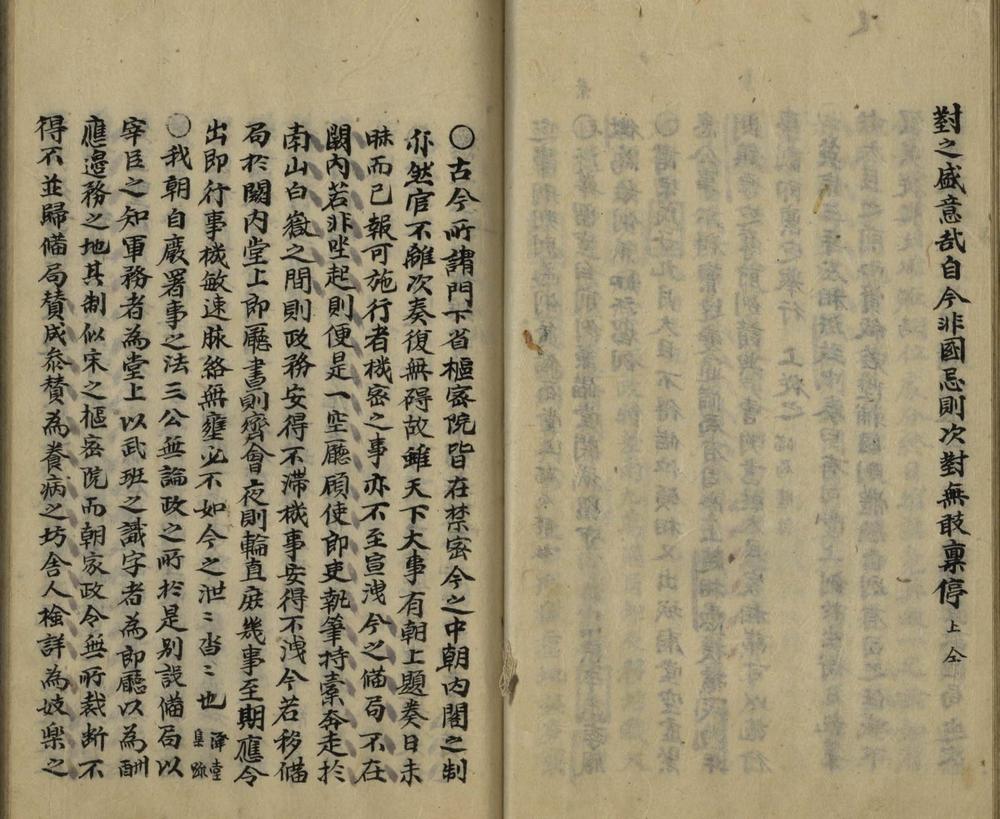 對之盛意哉自今非國忌則次對無敢稟停 上仝
○古今所謂門下省樞密院皆在禁密今之中朝內閣之制
亦然官不離次奏復無碍故雖天下大事有朝上題奏日未
昳而已報可施行者機密之事亦不至宣洩今之備局不在
闕內若非坐起則便是一空廳顧使郎吏執筆持橐奔走於
南山白嶽之間則政務安得不滯機事安得不洩今若移備
局於闕內堂上郎廳晝則齊會夜則輪直庶幾事至期應令
出即行事機敏速脉絡無壅必不如今之泄〻沓〻也 澤堂集
○我朝自廢署事之法三公無論政之所於是別設備局以
宰臣之知軍務者為堂上以武班之識字者為郎廳以為酬
應邊務之地其制似宋之樞密院而朝家政令無所裁斷不
得不並歸備局贊成叅贊為養病之坊舍人檢詳為妓樂之